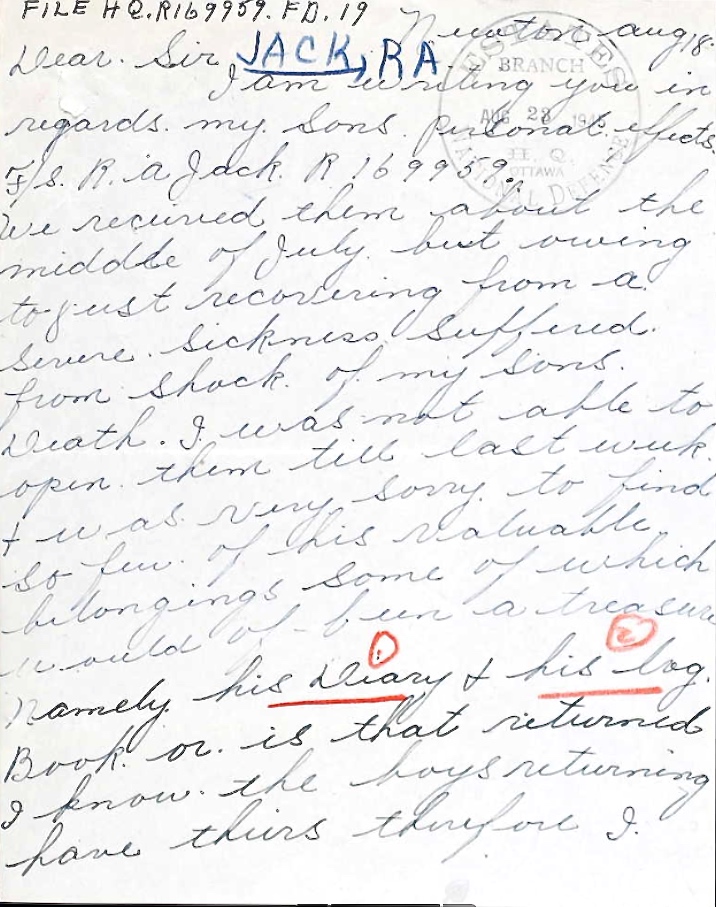 FILE HQ.R169959. FD. 19
Newton aug 18.
Dear. Sir JACK, RA
ESTATES
BRANCH
AUG 23 194
H. Q.
OTTAWA
NATIONAL DEFENSE
I am writing you in
regards. my Sons. personal. effects.
F/s. R. a Jack. R 169959.
We received them about the
middle of July but owing
to just recovering from a.
severe. sickness suffered.
from shock. of my sons.
Death. I was not able to
open. them till last week.
+ was very sorry to find
so few. of his valuable
belongings some of which
would of - been a treasure
Namely. his Diary + his log.
1
2
Book. or. is that returned
I know. the boys returning
have theirs therefore I.